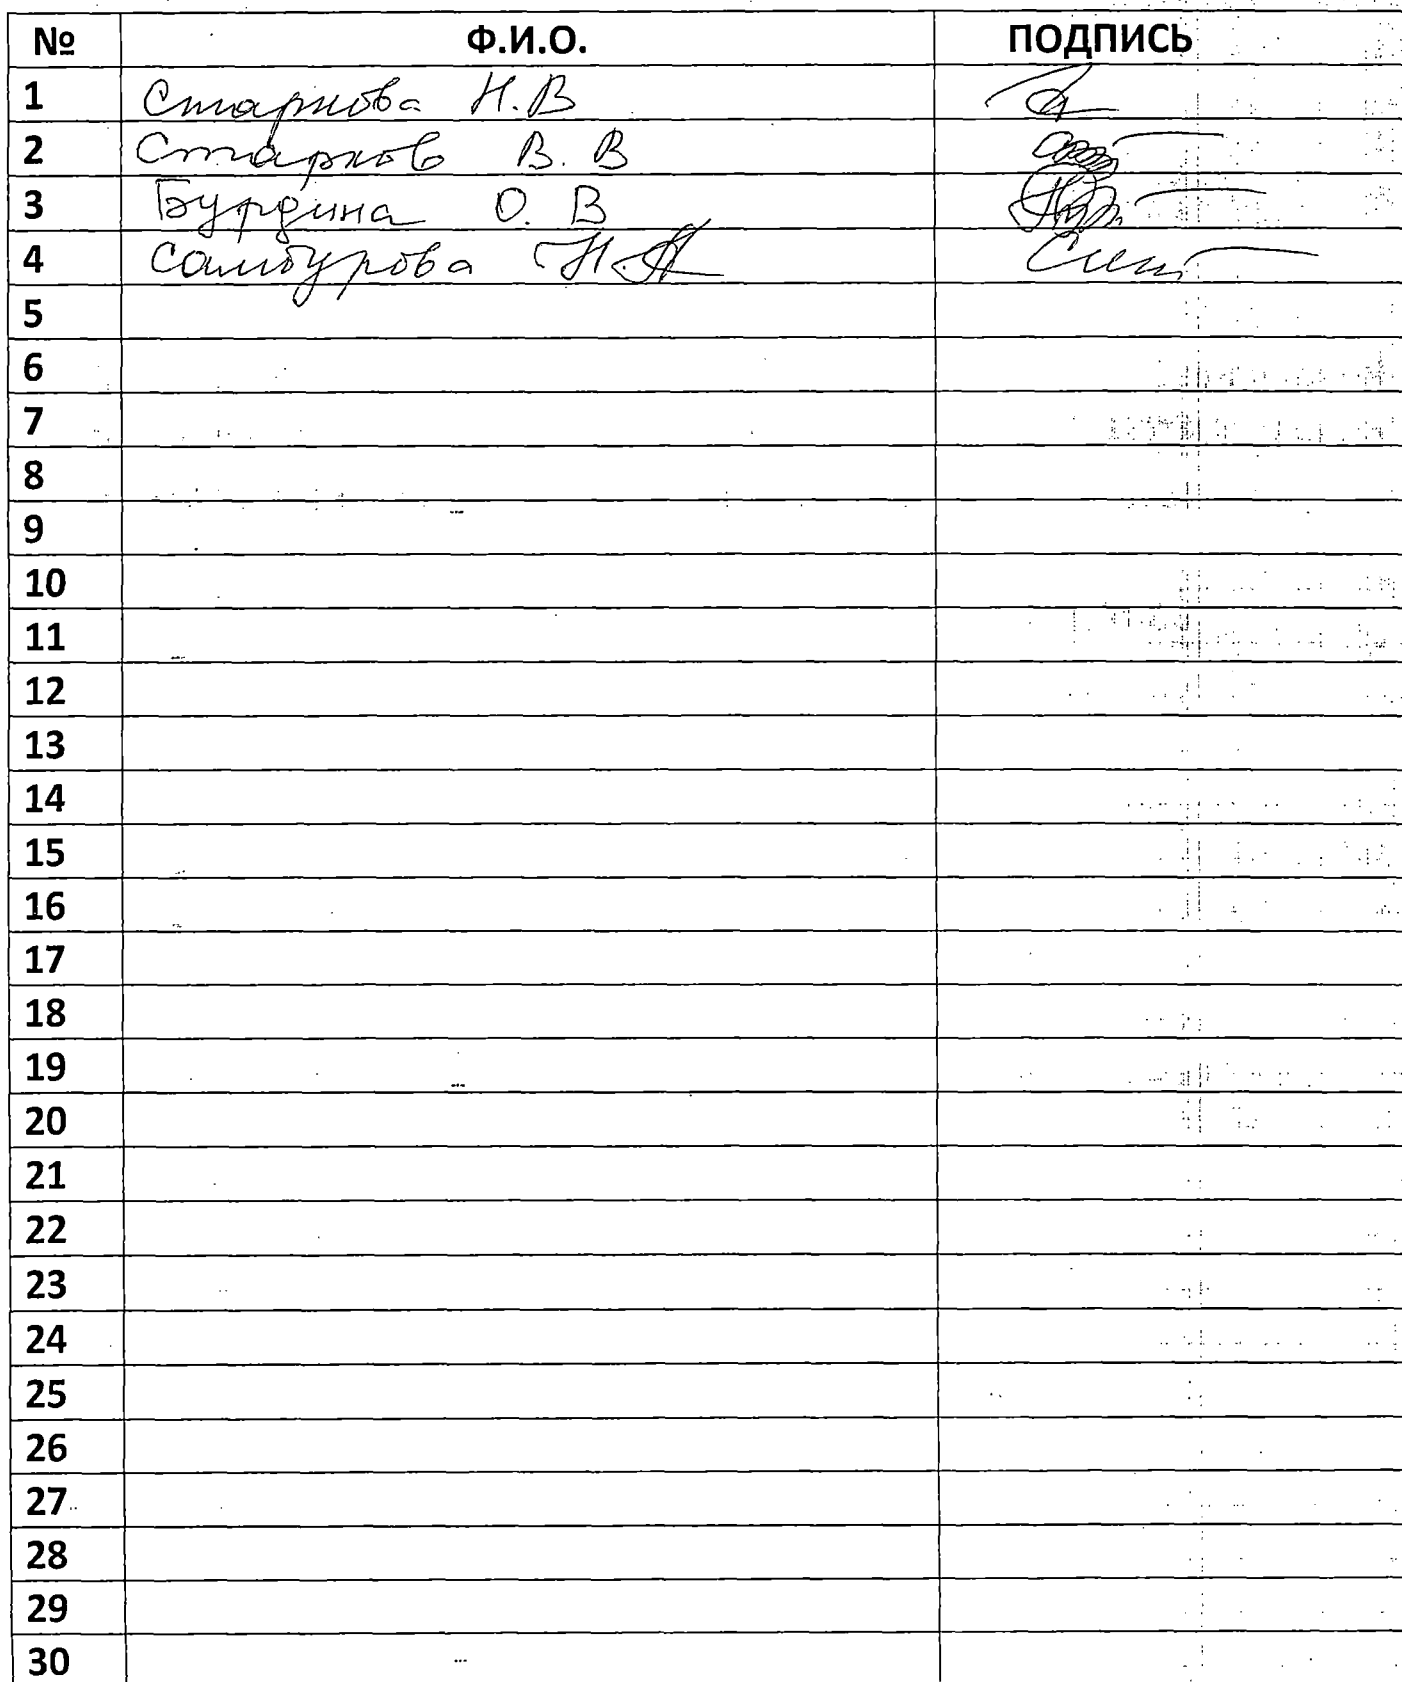 № Ф.И.О. ПОДПИСЬ
1 Старкова Н.В
2 Старков В. В
3 Бурдина О. В
4 Самбурова Н.А
5
6
7
8
9
10
11
12
13
14
15
16
17
18
19
20
21
22
23
24
25
26
27
28
29
30